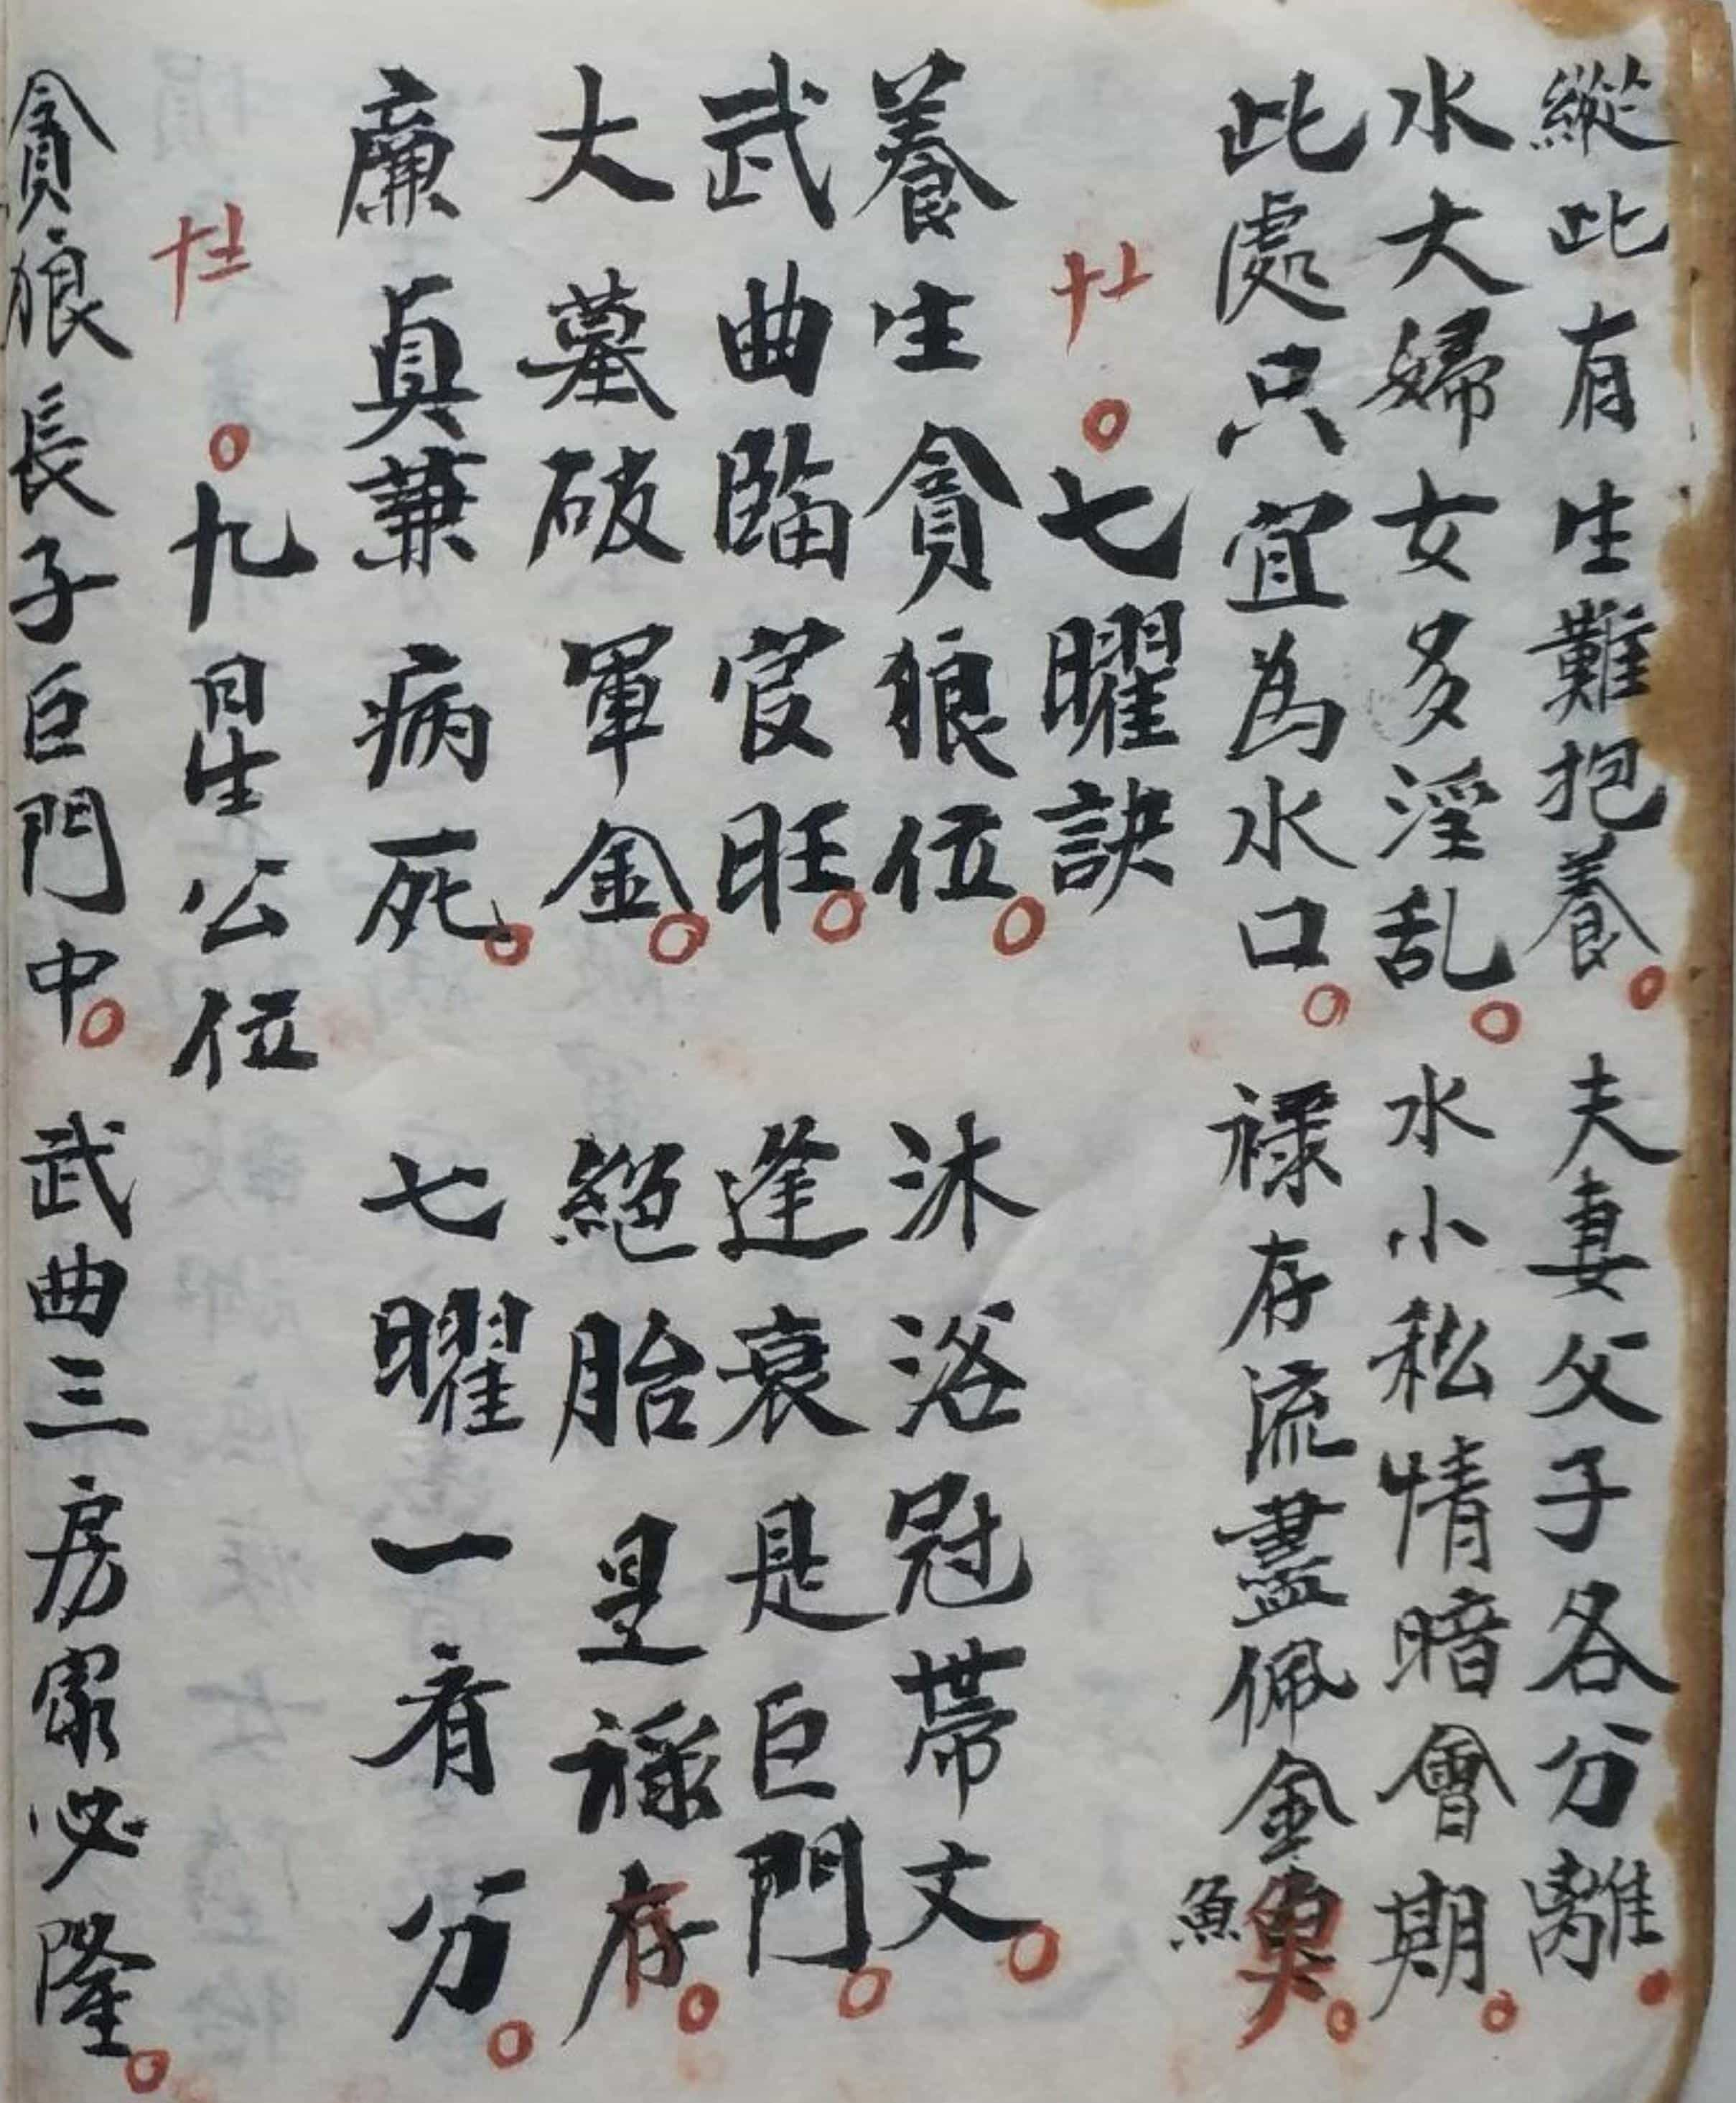 縱此有生難抱養。夫妻父子各分離。
水大婦女多淫乱。水小私情暗會期。
此處只宜為水口。祿存流盡佩金魚。
廿。七曜訣
養生貪狼位。沐浴冠帶文。
武曲臨官旺。逢衰是巨門。
大墓破軍金。絕胎是祿存。
廉真兼病死。七曜一看分。
九星公位
貪狼長子巨門中。武曲三房家必隆。